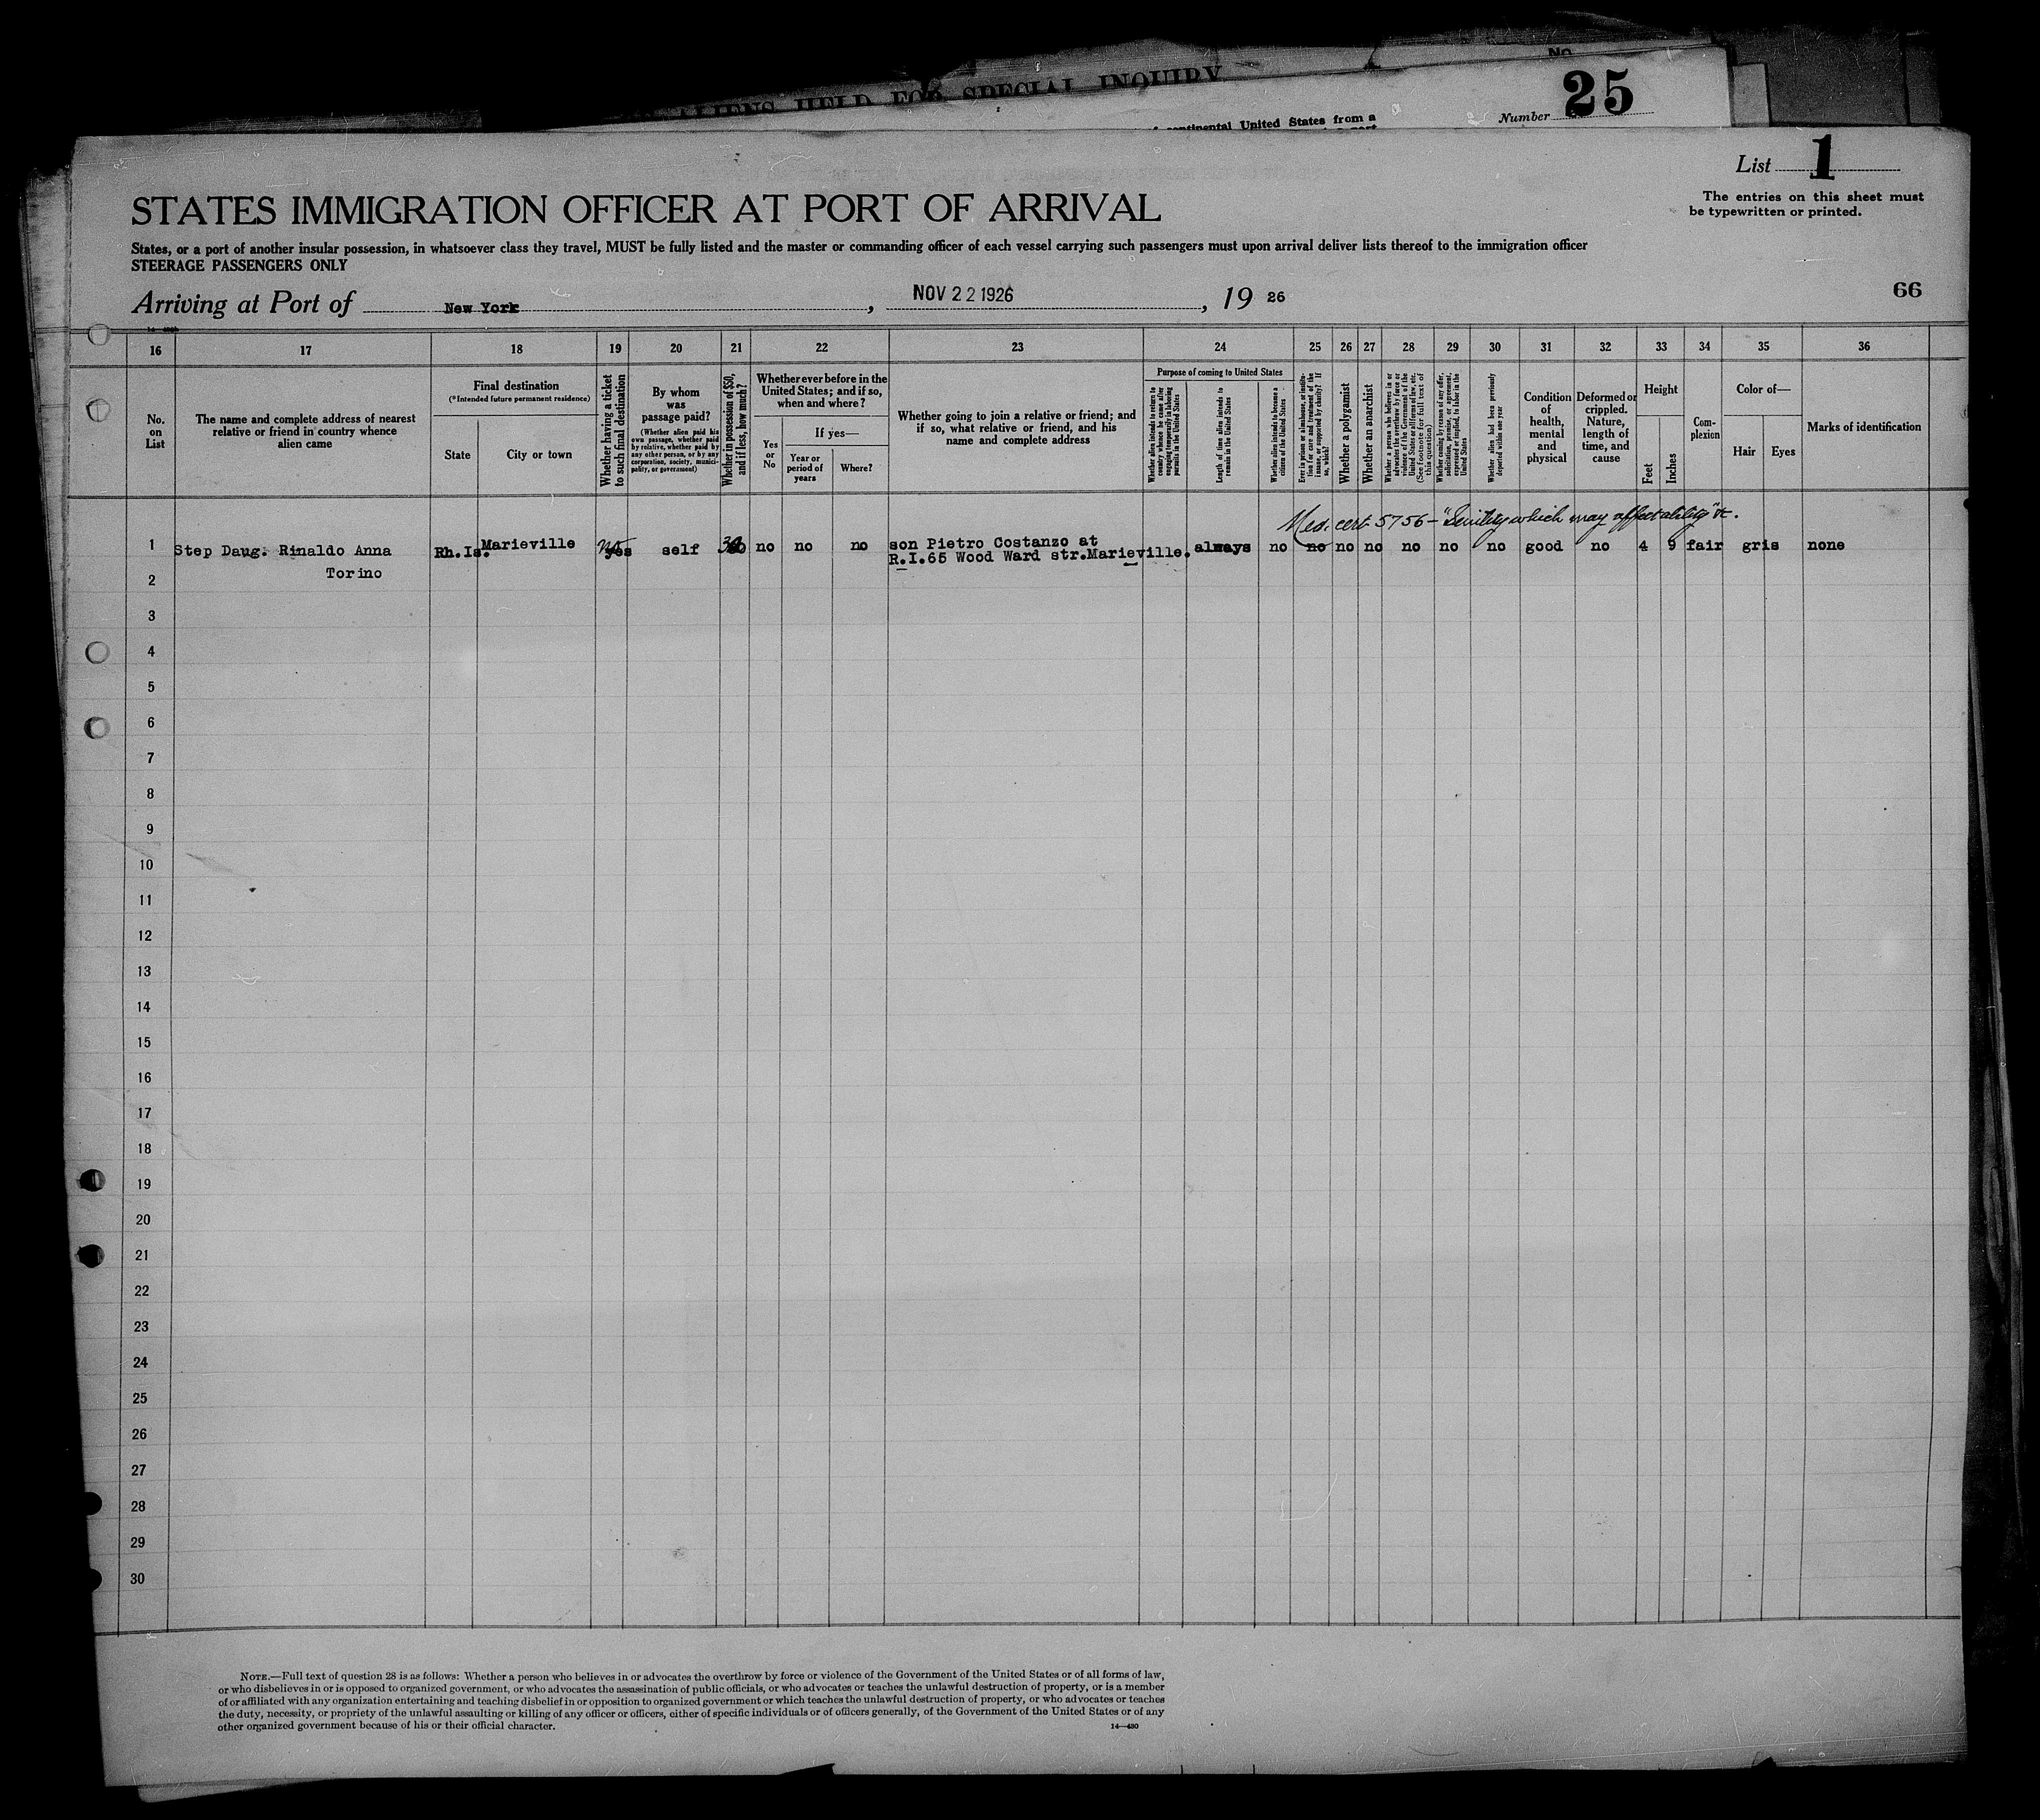 ALIENS HELD FOR SPECIAL INQUIRY
No.
Number 25
continental United States from a
List 1
The entries on this sheet must
be typewritten or printed.
STATES IMMIGRATION OFFICER AT PORT OF ARRIVAL
States, or a port of another insular possession, in whatsoever class they travel, MUST be fully listed and the master or commanding officer of each vessel carrying such passengers must upon arrival deliver lists thereof to the immigration officer
STEERAGE PASSENGERS ONLY
66
Arriving at Port of New York, NOV 22 1926, 19 26
16 17 18 19 20 21 22 23 24 25 26 27 28 29 30 31 32 33 34 35 36
No.
on
List
The name and complete address of nearest
relative or friend in country whence
alien came
Final destination
(*Intended future permanent residence)
State
City or town
Whether having a ticket
to such final destination
By whom
was
passage paid?
(Whether alien paid his
own passage, whether paid
by relative, whether paid by
any other person, or by any
corporation, society, munici-
pality, or government)
Whether in possession of $50,
and if less, how much?
Whether ever before in the
United States; and if so,
when and where?
Yes
or
No
If yes—
Year or
period of
years
Where?
Whether going to join a relative or friend; and
if so, what relative or friend, and his
name and complete address
Purpose of coming to United States
Whether alien intends to return to
country whence he came after
engaging temporarily in laboring
pursuits in the United States
Length of time alien intends to
remain in the United States
Whether alien intends to become a
citizen of the United States
Ever in prison or almshouse, or institu-
tion for care and treatment of the
insane, or supported by charity? If
so, which?
Whether a polygamist
Whether an anarchist
Whether a person who believes in or
advocates the overthrow by force or
violence of the Government of the
United States or all forms of law, etc.
(See footnote for full text of
this question)
Whether coming by reason of any offer,
solicitation, promise, or agreement,
expressed or implied, to labor in the
United States
Whether alien had been previously
deported within one year
Condition
of
health,
mental
and
physical
Deformed or
crippled.
Nature,
length of
time, and
cause
Height
Feet
Inches
Com-
plexion
Color of—
Hair
Eyes
Marks of identification
Med. cert 5756 - "Senility which may affect ability" etc.
1 Step Daug. Rinaldo Anna Rh.Is. Marieville no yes self 30 no no no son Pietro Costanzo at always no no no no no no no good no 4 9 fair gris none
R.I.65 Wood Ward str.Marieville.
Torino
2
3
4
5
6
7
8
9
10
11
12
13
14
15
16
17
18
19
20
21
22
23
24
25
26
27
28
29
30
NOTE.—Full text of question 28 is as follows: Whether a person who believes in or advocates the overthrow by force or violence of the Government of the United States or of all forms of law,
or who disbelieves in or is opposed to organized government, or who advocates the assassination of public officials, or who advocates or teaches the unlawful destruction of property, or is a member
of or affiliated with any organization entertaining and teaching disbelief in or opposition to organized government or which teaches the unlawful destruction of property, or who advocates or teaches
the duty, necessity, or propriety of the unlawful assaulting or killing of any officer or officers, either of specific individuals or of officers generally, of the Government of the United States or of any
other organized government because of his or their official character.
14—430